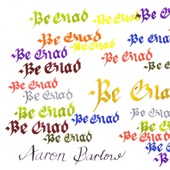 Be Glad
Be Glad
Be Glad
Be Glad
Be Glad
Be Glad
Be Glad
Be Glad
Be Glad
Be Glad
Be Glad
Be Glad
Be Glad
Be Gla
Be Glad
Be Glad
Be Glad
Aaron Barlow